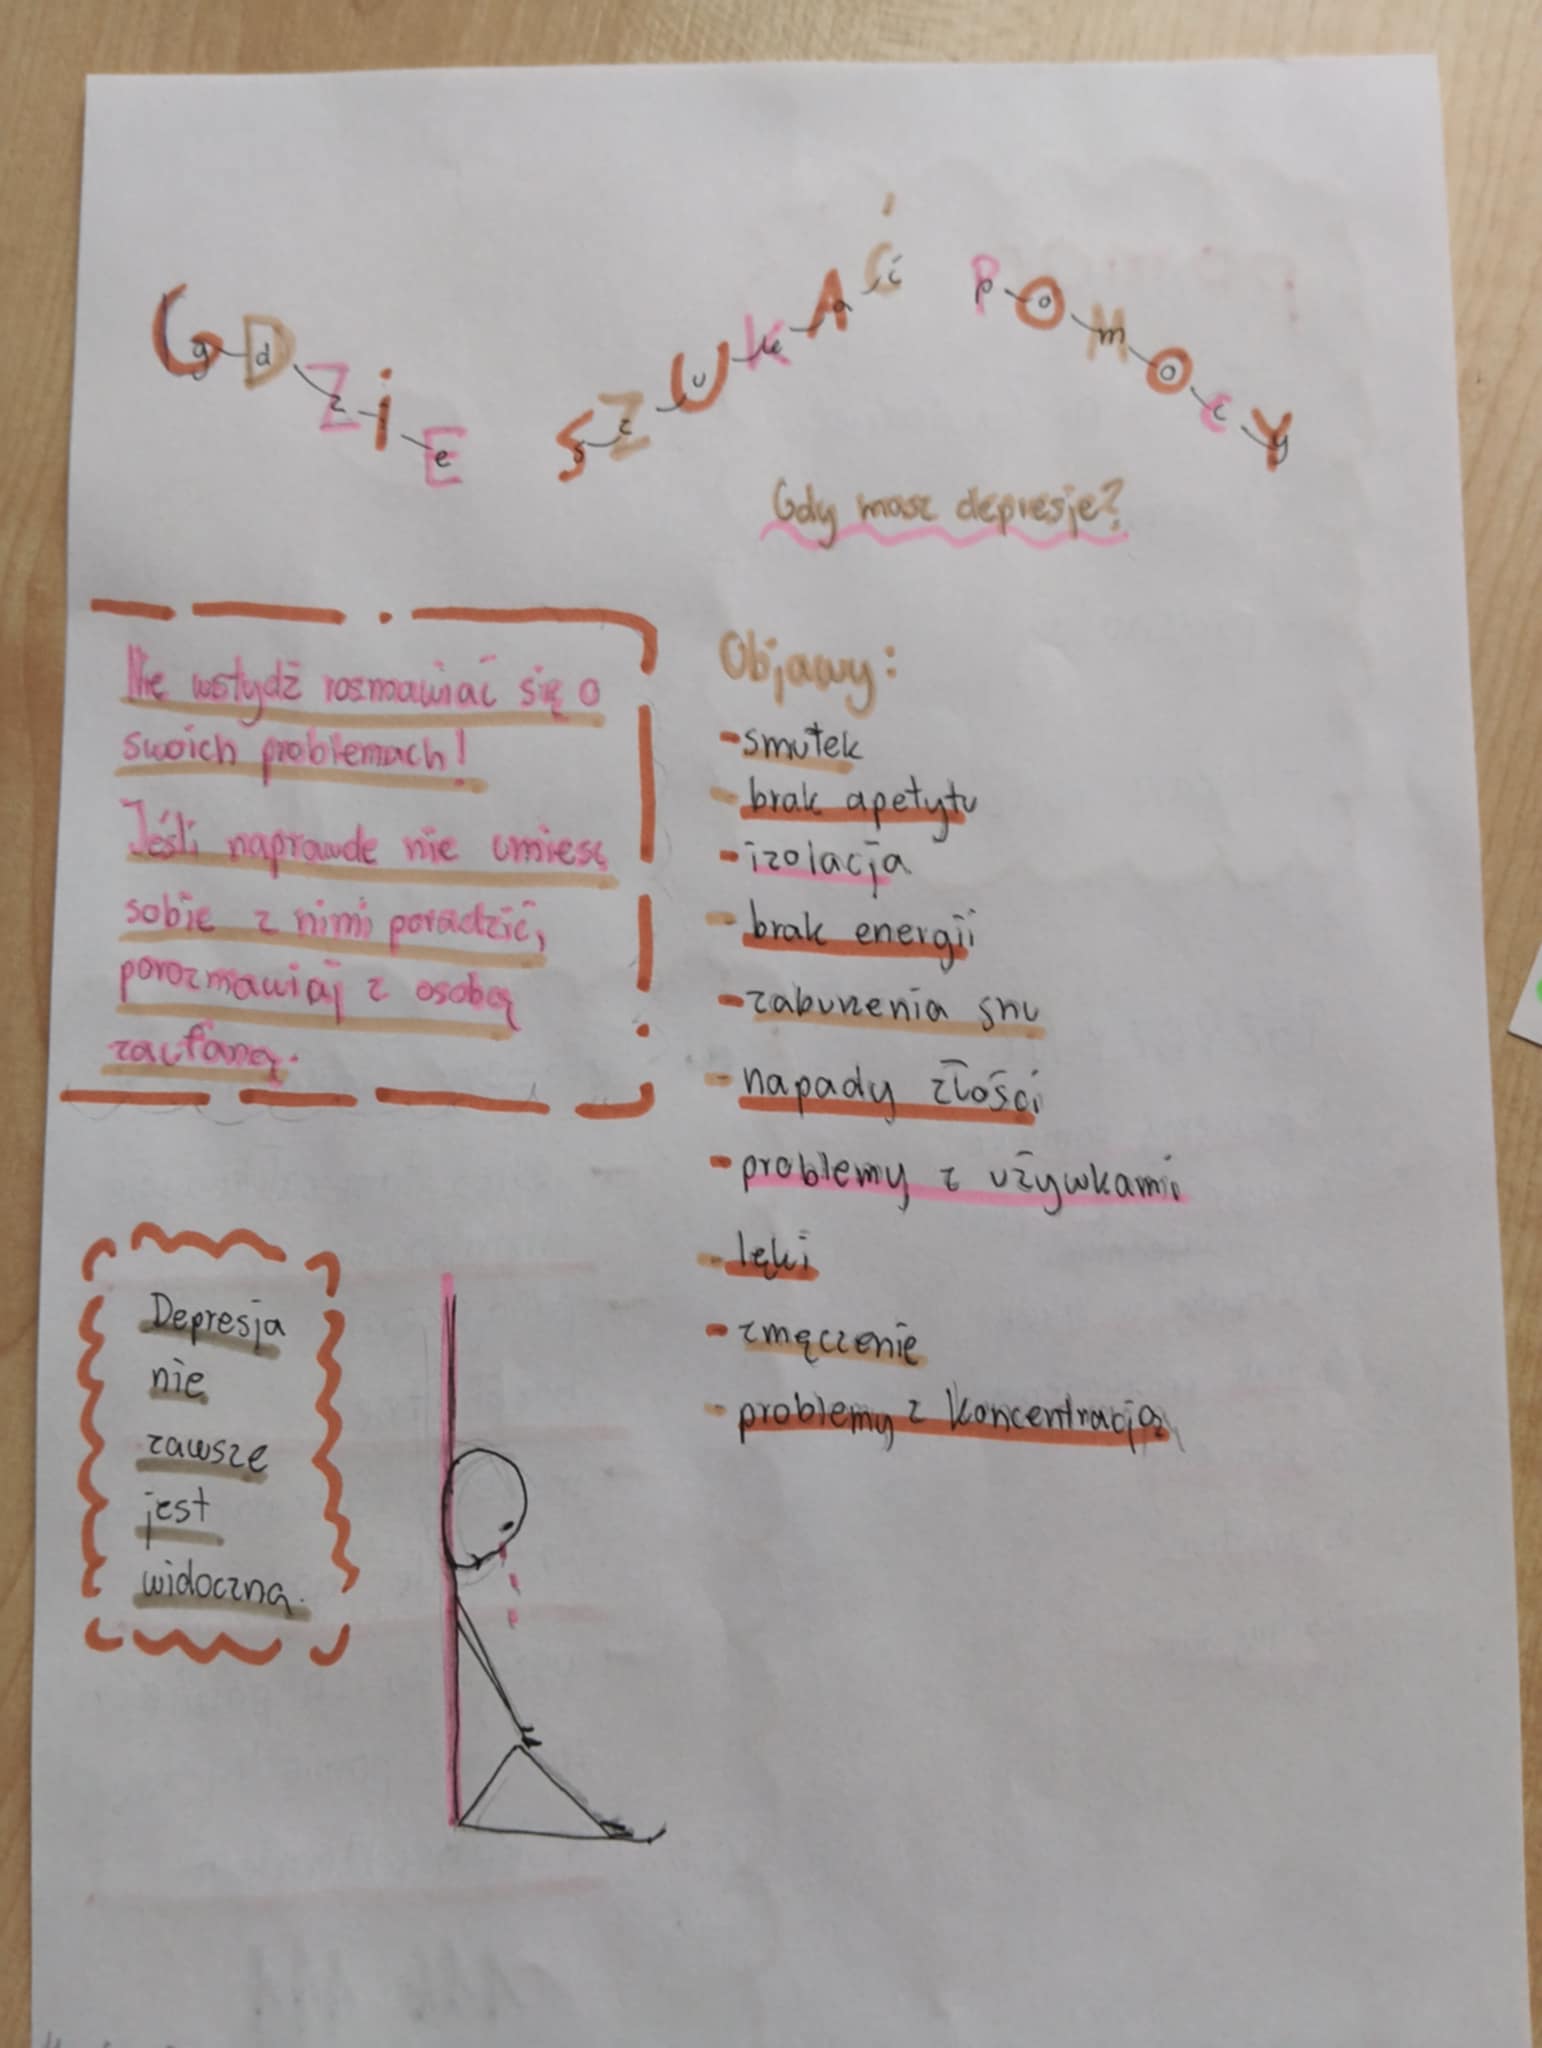 GDZIE SZUKAĆ POMOCY
Gdy masz depresje?
Nie wstydź rosmawiać się o
swoich problemach!
Jeśli naprawde nie umiesz
sobie z nimi poradzić,
porozmawiaj z osobą
zaufaną.
Objawy:
-smutek
-brak apetytu
-izolacja
-brak energii
-zaburzenia snu
-napady złości
-problemy z używkami
-lęki
-zmęczenie
-problemy z koncentracją
Depresja
nie
zawsze
jest
widoczna.